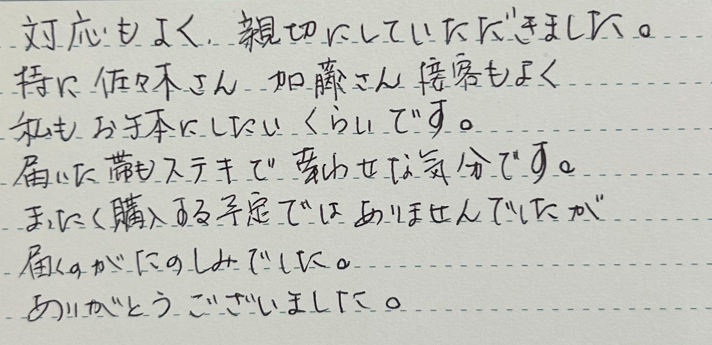 対応もよく、親切にしていただきました。
特に佐々木さん 加藤さん 接客もよく
私もお手本にしたいくらいです。
届いた帯もステキで幸わせな気分です。
まったく購入する予定ではありませんでしたが
届くのがたのしみでした。
ありがとうございました。